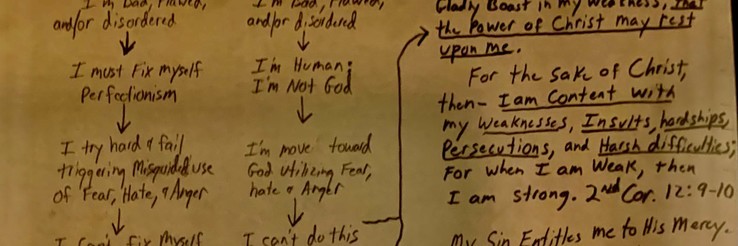 I'm Bad, Flawed,
and/or disordered
I must Fix myself
Perfectionism
I try hard & fail
triggering Misguided use
of Fear, Hate, & Anger
I can't Fix Myself
I'm Bad, Flawed,
and/or disordered
I'm Human;
I'm Not God
I'm move toward
God utilizing Fear,
hate & Anger
I can't do this
Gladly Boast in my weakness, that
the Power of Christ may rest
upon me.
For the sake of Christ,
then- I am Content with
my weaknesses, Insults, hardships,
Persecutions, and Harsh difficulties;
For when I am Weak, then
I am strong. 2nd Cor. 12:9-10
My Sin Entitles me to His Mercy.